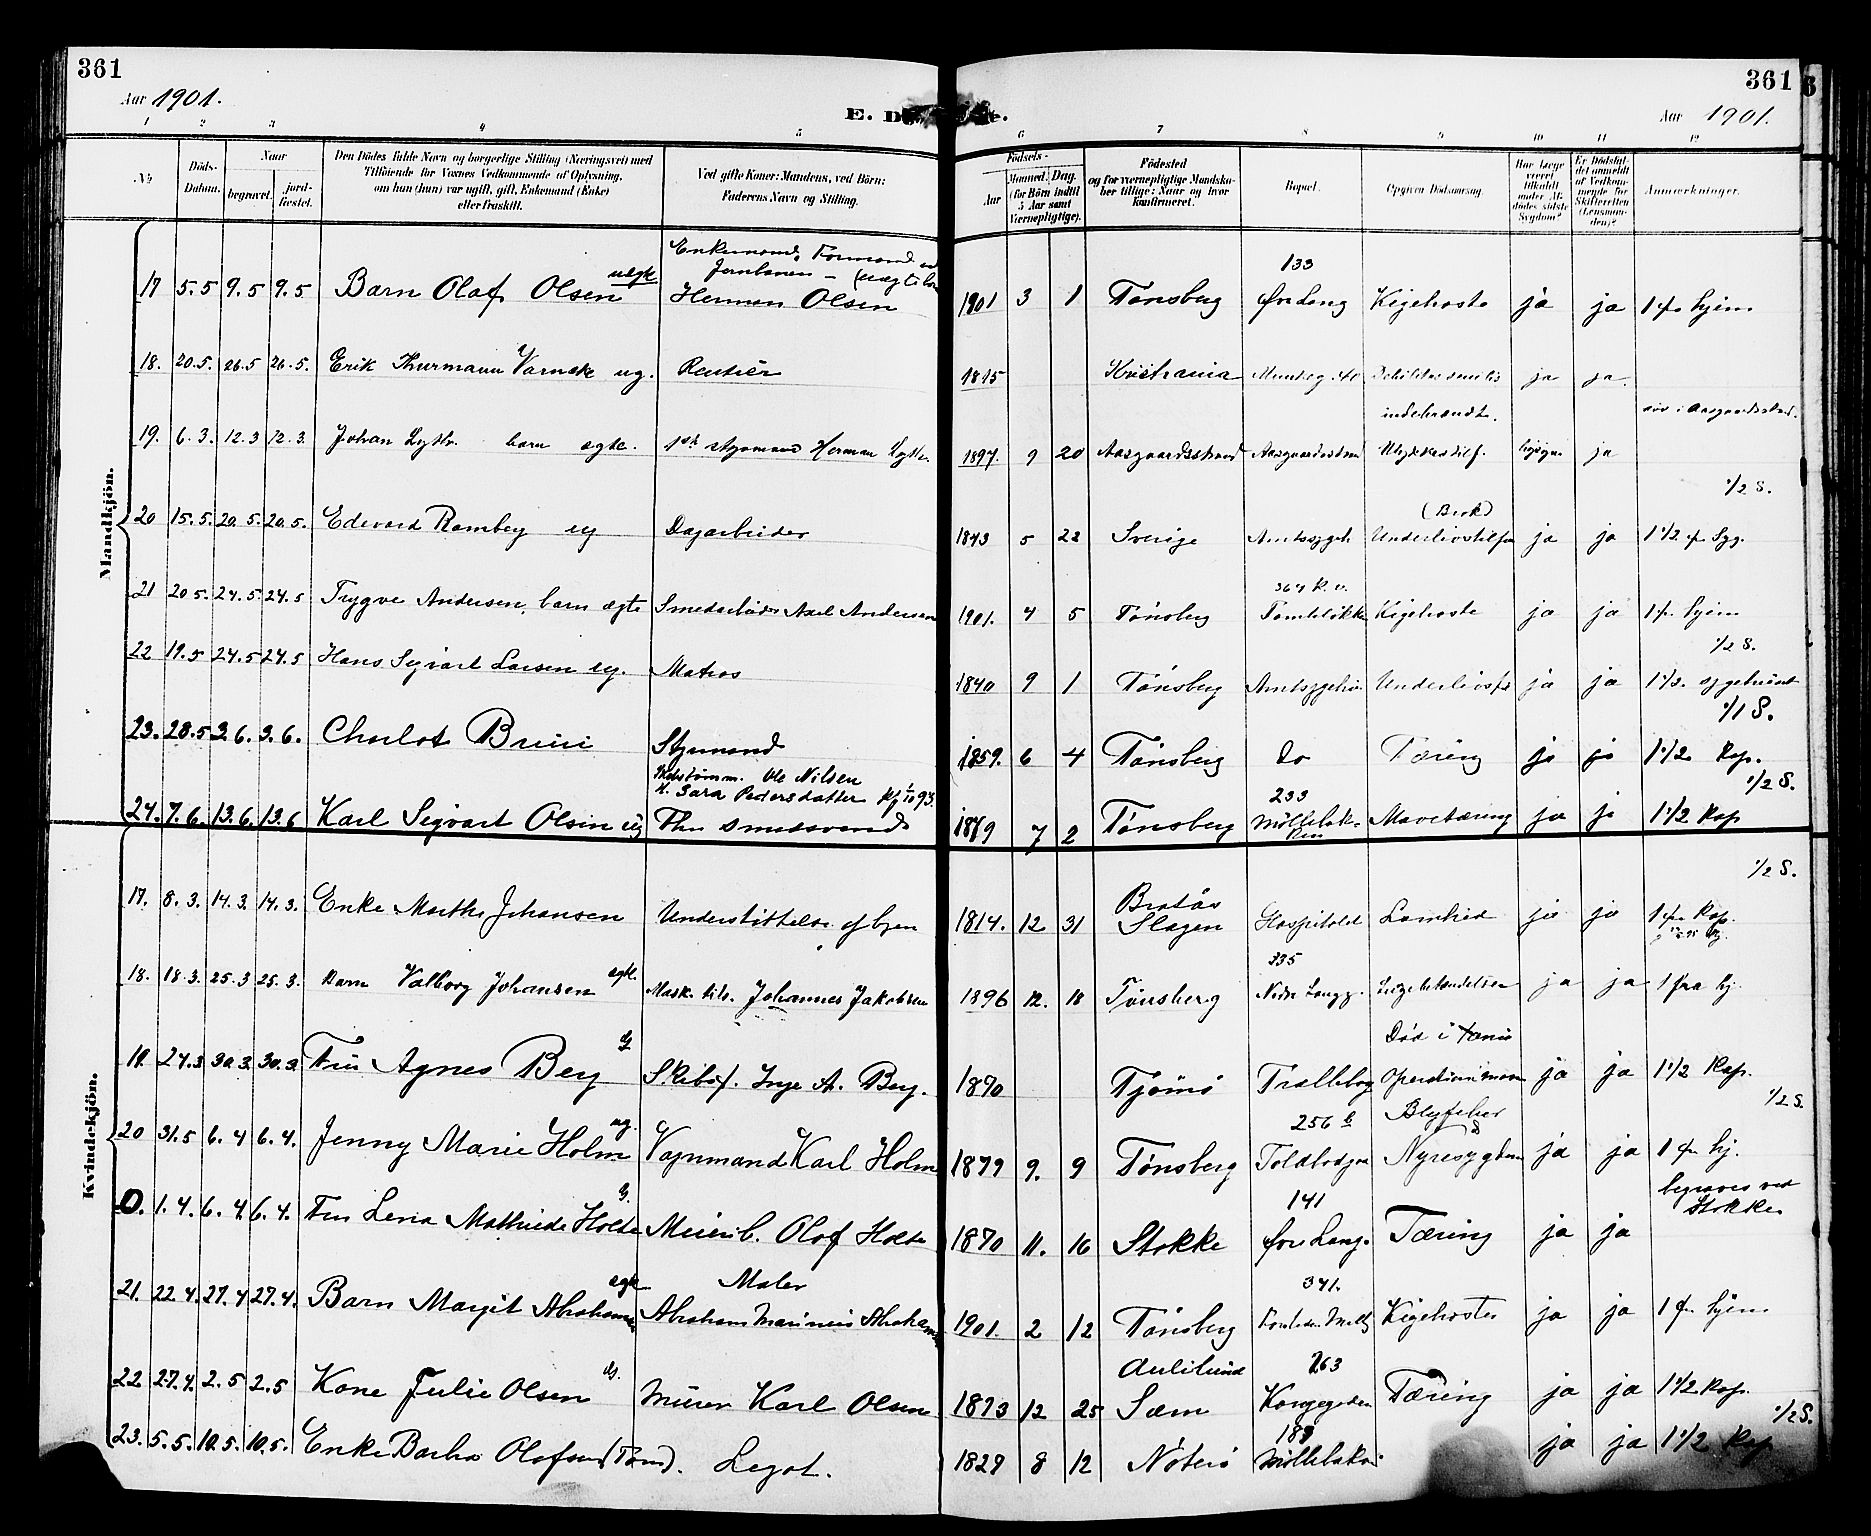 361
Aar 1901.
361
Aar 1901.
1 2 3 4 5 6 7 8 9 10 11 12
No
Döds-Datum.
Naar
begravet.
jord-fæstet.
Den Dödes fulde Navn og borgerlige Stilling (Næringsvei) med
Tilföiende for Voxnes Vedkommende af Oplysning,
om han (hun) var ugift, gift, Enkemand (Enke)
eller fraskilt.
Ved gifte Koner: Mandens, ved Börn:
Faderens Navn og Stilling.
Födsels-
Aar
Maaned. Dag.
(for Börn indtil
5 Aar samt
Værnepligtige).
Födested
og for værnepligtige Mandska-
ber tillige: Naar og hvor
konfirmeret.
Bopæl.
Opgiven Dödsaarsag.
Har læge
været
tilkaldt
under Af-
dødes sidste
Sygdom?
Er Dödsfal-
det anmeldt
af Vedkom-
mende for
Skifteretten
(Lensman-
den)?
Anmærkninger.
Mandkjön.
17 5.5 9.5 9.5 Barn Olaf Olsen uegte Enkemand, Formand ved Jernbanen – Herman Olsen 1901 3 1 Tønsberg 133 øvre Lang Kigehoste ja ja 1 fr hjem
18. 20.5. 26.5 26.5. Erik Thurmann Varneke ug. Rentier 1815 Kristiania ja ja.
19. 6.3. 12.3 12.3. Johan barn ægte. Herman 1897. 9 20 Aasgaardsstrand Aasgaardsstrand indebrændt. Ulykkestilf. ja
20 15.5. 20.5. 20.5. Edevard Ramberg ug Dagarbeider 1843 5 22 Sverige Amtssygeh (Brok) Underlivstilfæ ja ja 1/2 S. 1 1/2 fr Syg.
21 20 5. 24.5. 24.5 Trygve Andersen, barn ægte Smedarbeider Axel Andersen 1901. 4 5 Tønsberg 364 K.v. Tomteløkken Kigehoste ja ja 1 fr. hjem
22 19.5 24.5 24.5 Hans Sigvart Larsen ug. Matros 1840 9 1 Tønsberg Amtsygehu Underlivs ja ja 1/2 S. 1 1/2. sygehuset
23. 28.5 3.6. 3.6. Charlot Bruu Styrmand 1859. 6 4 Tønsberg Do Tæring ja ja 1/1 S. 1 1/2 Kap.
24. 7.6. 13.6. 13.6 Karl Sigvart Olsen ug Ole Nilsen H. Sara Pedersdatter Kf 1/10 93. Fhv smedsvend 1879 7 2 Tønsberg 233 Møllebak-ken Mavetæring ja ja 1/2 S. 1 1/2 Kap
Kvindekjön.
17. 8.3. 14.3. 14.3. Enke Marthe Johansen Understøttelse af byen 1814. 12 31 Bratås Slagen Hospitalet Lamhed ja ja 1/2 S. 1 fra Kap.
18. 18.3. 25.3 25.3. Barn Valborg Johansen egte. Mask. Johannes Jakobsen 1896 12. 18 Tønsberg 335 Nedre Langg. ja ja 1 fra hj.
19. 24.3 30.3. 30.3 Fru Agnes Berg G Skibsf. Inge A. Berg. 1870 Tjømø Træleborg Død i Operation ja ja 1 1/2 Kap.
20 31.5 6.4 6.4. Jenny Marie Holm ug. Vognmand Karl Holm 1879 9. 9 Tønsberg 256 b Toldbodgn Blyfeber & Nyresygdom ja ja 1/2 S. 1 fr hj.
0. 1.4. 6.4. 6.4. Fru Lena Mathilde Holte G. Meierib. Olaf Holte 1870 11. 16 Stokke 141 øvre Lang. Tæring ja ja begraves ved Stokke
21. 22.4. 27.4 27.4. Barn Margit Abrahamsen egte Maler Abraham Marinius Abrahamsen 1901. 2 12 Tønsberg 341. Kigehoste ja ja 1 fr hjem
22 27.4. 2.5 2.5 Kone Julie Olsen G. Murer Karl Olsen 1873 12 25 Aulilund Sæm 263 Kongegaden Tæring ja ja 1 1/2 Kap.
23. 5.5. 10.5. 10.5. Enke Barbro Olafsen (Tom). Legat. 1829 8 12 Nøterø 188 Møllebak ja ja 1/2 S. 1 1/2 Kap